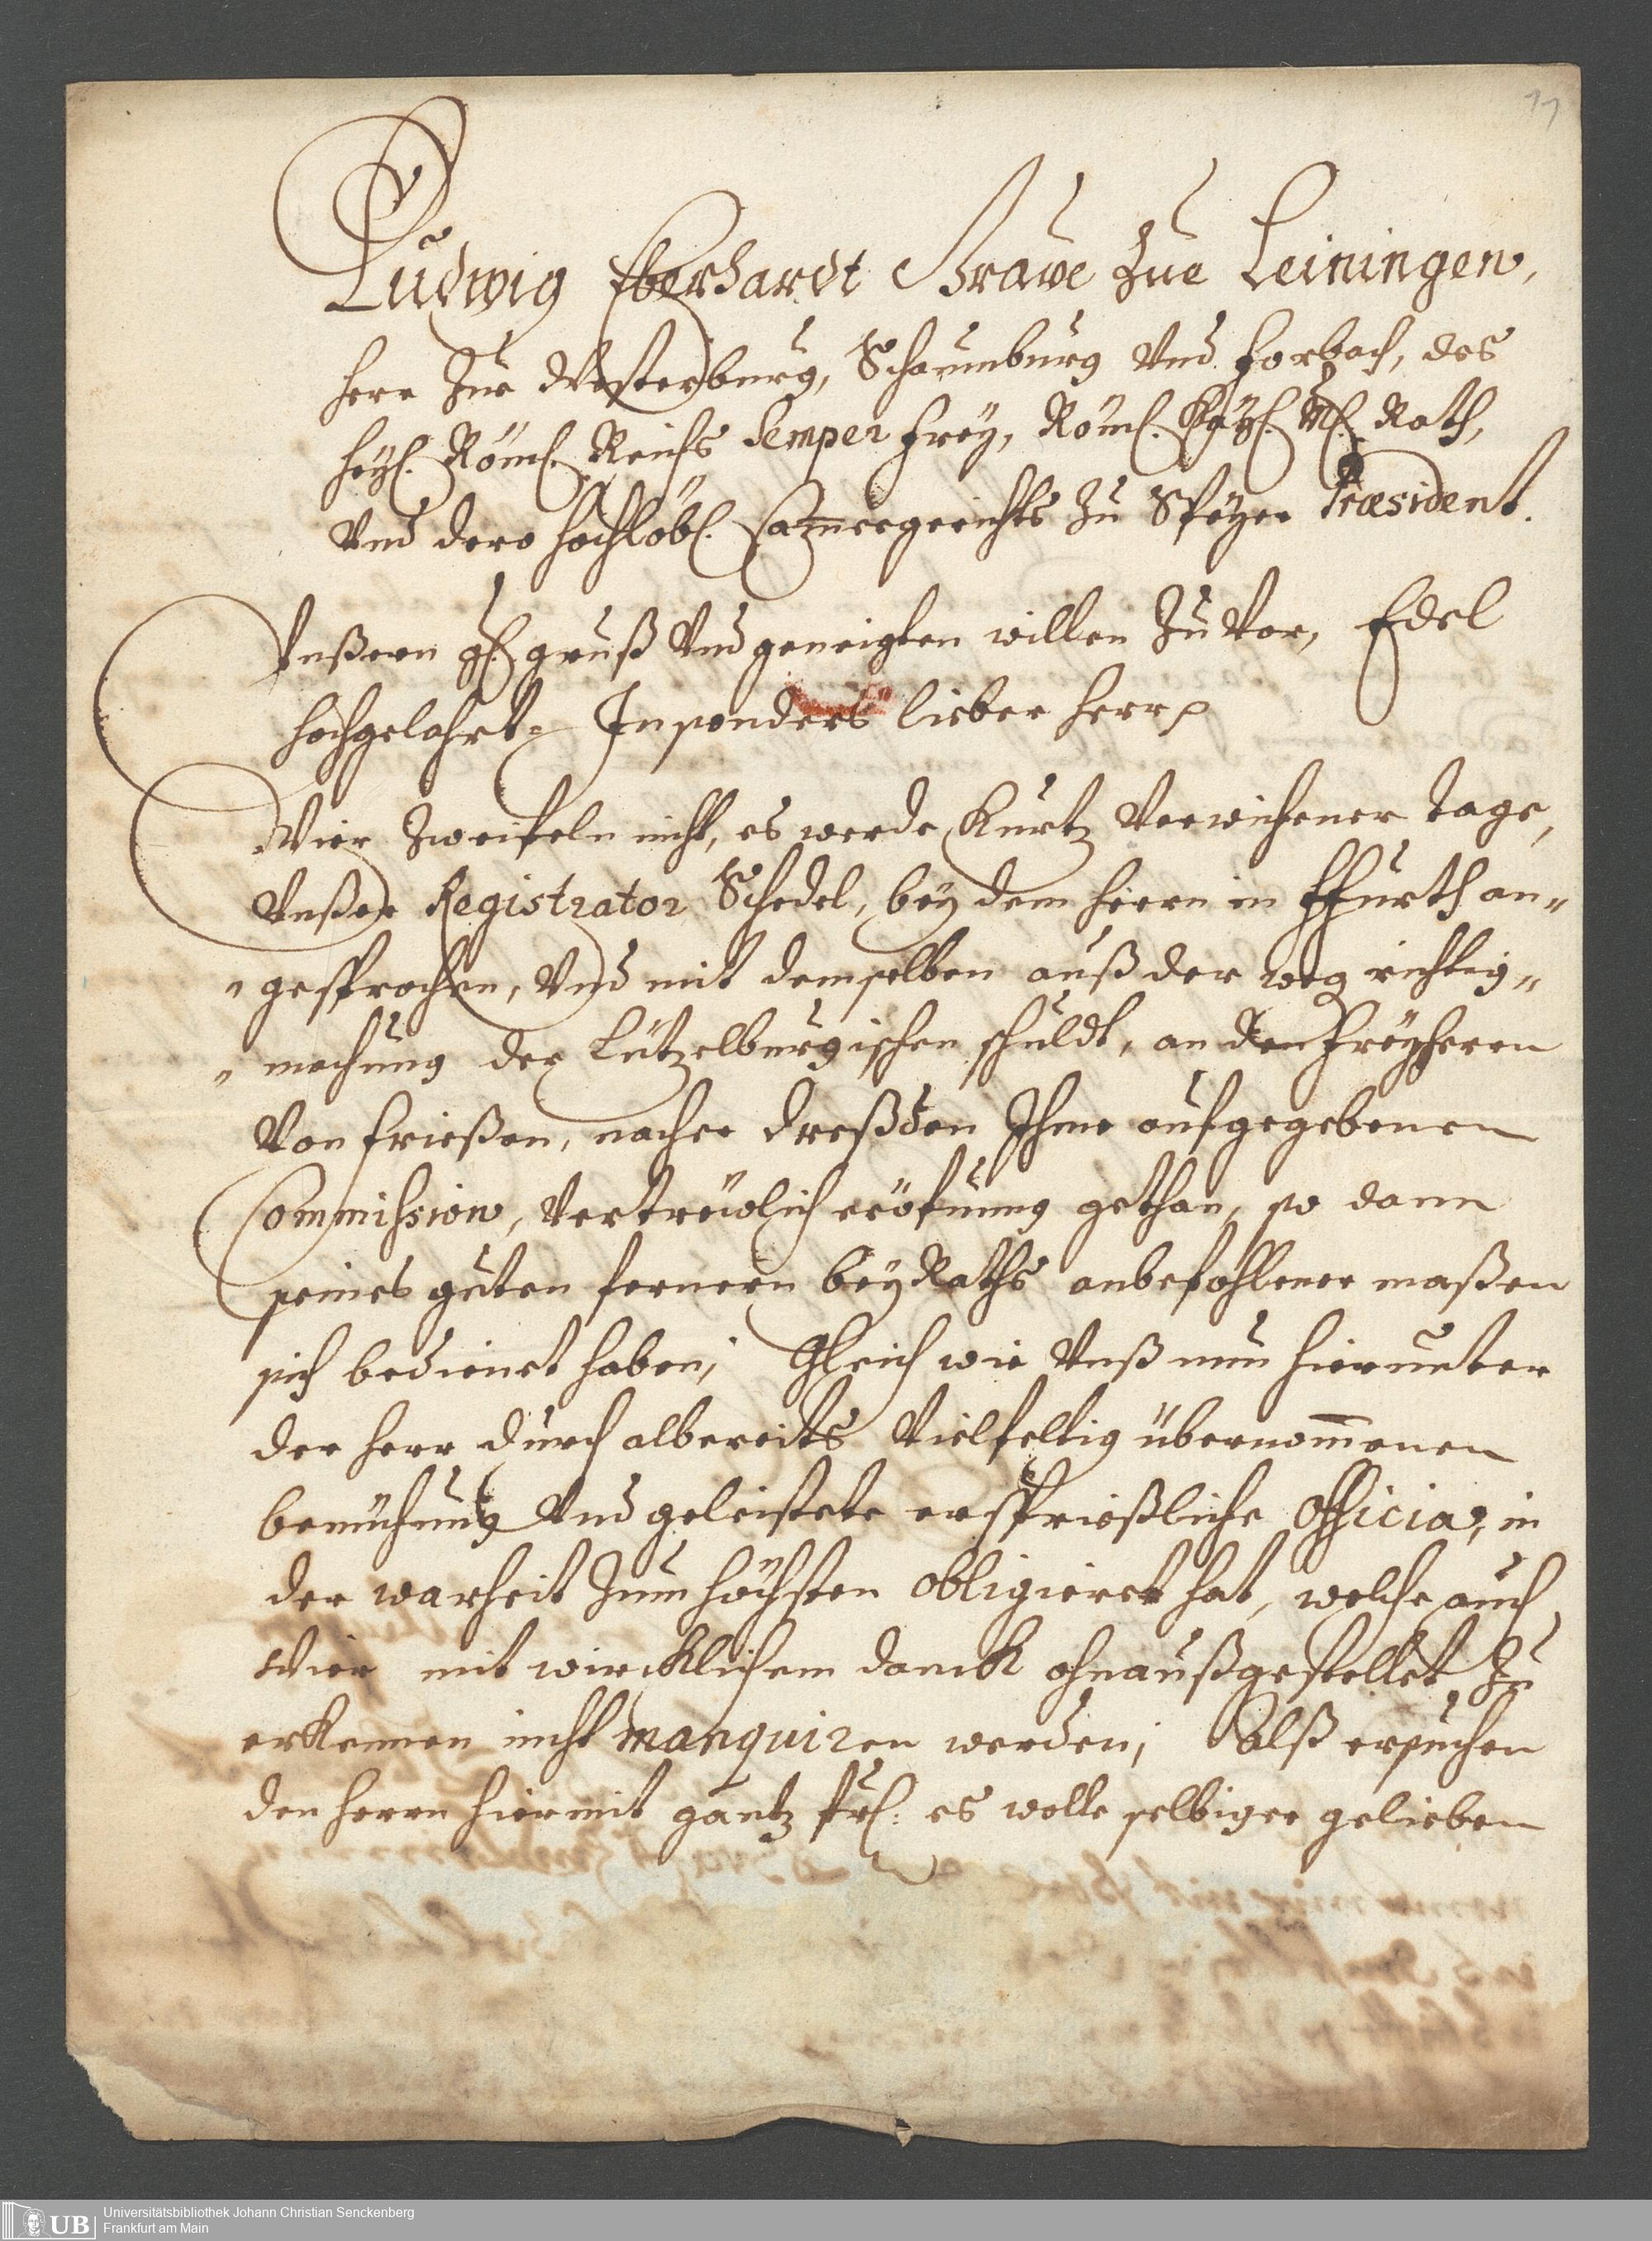 11
Ludwig Eberhardt Grave Zue Leiningen,
Herr Zue Westerburg, Schaumburg Vnd Forbach, des
Heyl. Röml. Reichs Semper Frey, Röml. Kayl. Ml. Rath,
Vnd dero Hochlöbl. Cam̅ergerichts Zu Speyer Præsident.
Vnßern gl. gruß Vnd geneigten willen Zu Vor, Edel
Hochgelahrt. Insonders lieber Herr
Wier Zweifeln nicht, es werde Kurtz Verwichener Tage,
Vnßer Registrator Schedel, bey dem Herrn in Ffurth an„
„gesprochen, Vnd mit demselben auß der weg richtig„
„machung der Lützelburgischen schuldt, an den Freyherrn
Von Frießen, nacher Dreßden Ihme aufgegebenen
Commission, Vertrewlich eröfnung gethan, so dann
seines guten fernern beyRaths anbefohlener maßen
sich bedienet haben; Gleich wie Vnß nun hierunter
der Herr durch albereits Vielfeltig übernom̅enen
bemühung Vnd geleistete ersprießliche Officia, in
der warheit Zum höchsten obligieret hat, welche auch
Wier mit wircklichem danck ohnaußgestellet Zu
erkennen nicht manquiren werden; Alß ersuchen
den Herrn hiermit gantz frl. es wolle selbiger gelieben
UB Universitätsbibliothek Johann Christian Senckenberg
Frankfurt am Main